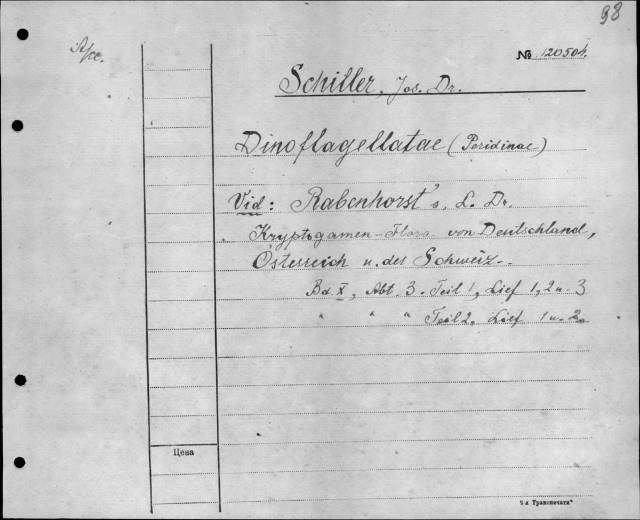 98
№ 120504.
Schiller, Jos. Dr.
Dinoflagellatae (Peridinae)
Vid: Rabenhorst's, L. Dr.
Kryptogamen-Flora von Deutschland,
Österreich u. der Schweiz.
Bd. X, Abt. 3. Teil 1, Lief 1, 2 u. 3
" " " Teil 2, Lief 1 u. 2
Цена
5-я Транспечать